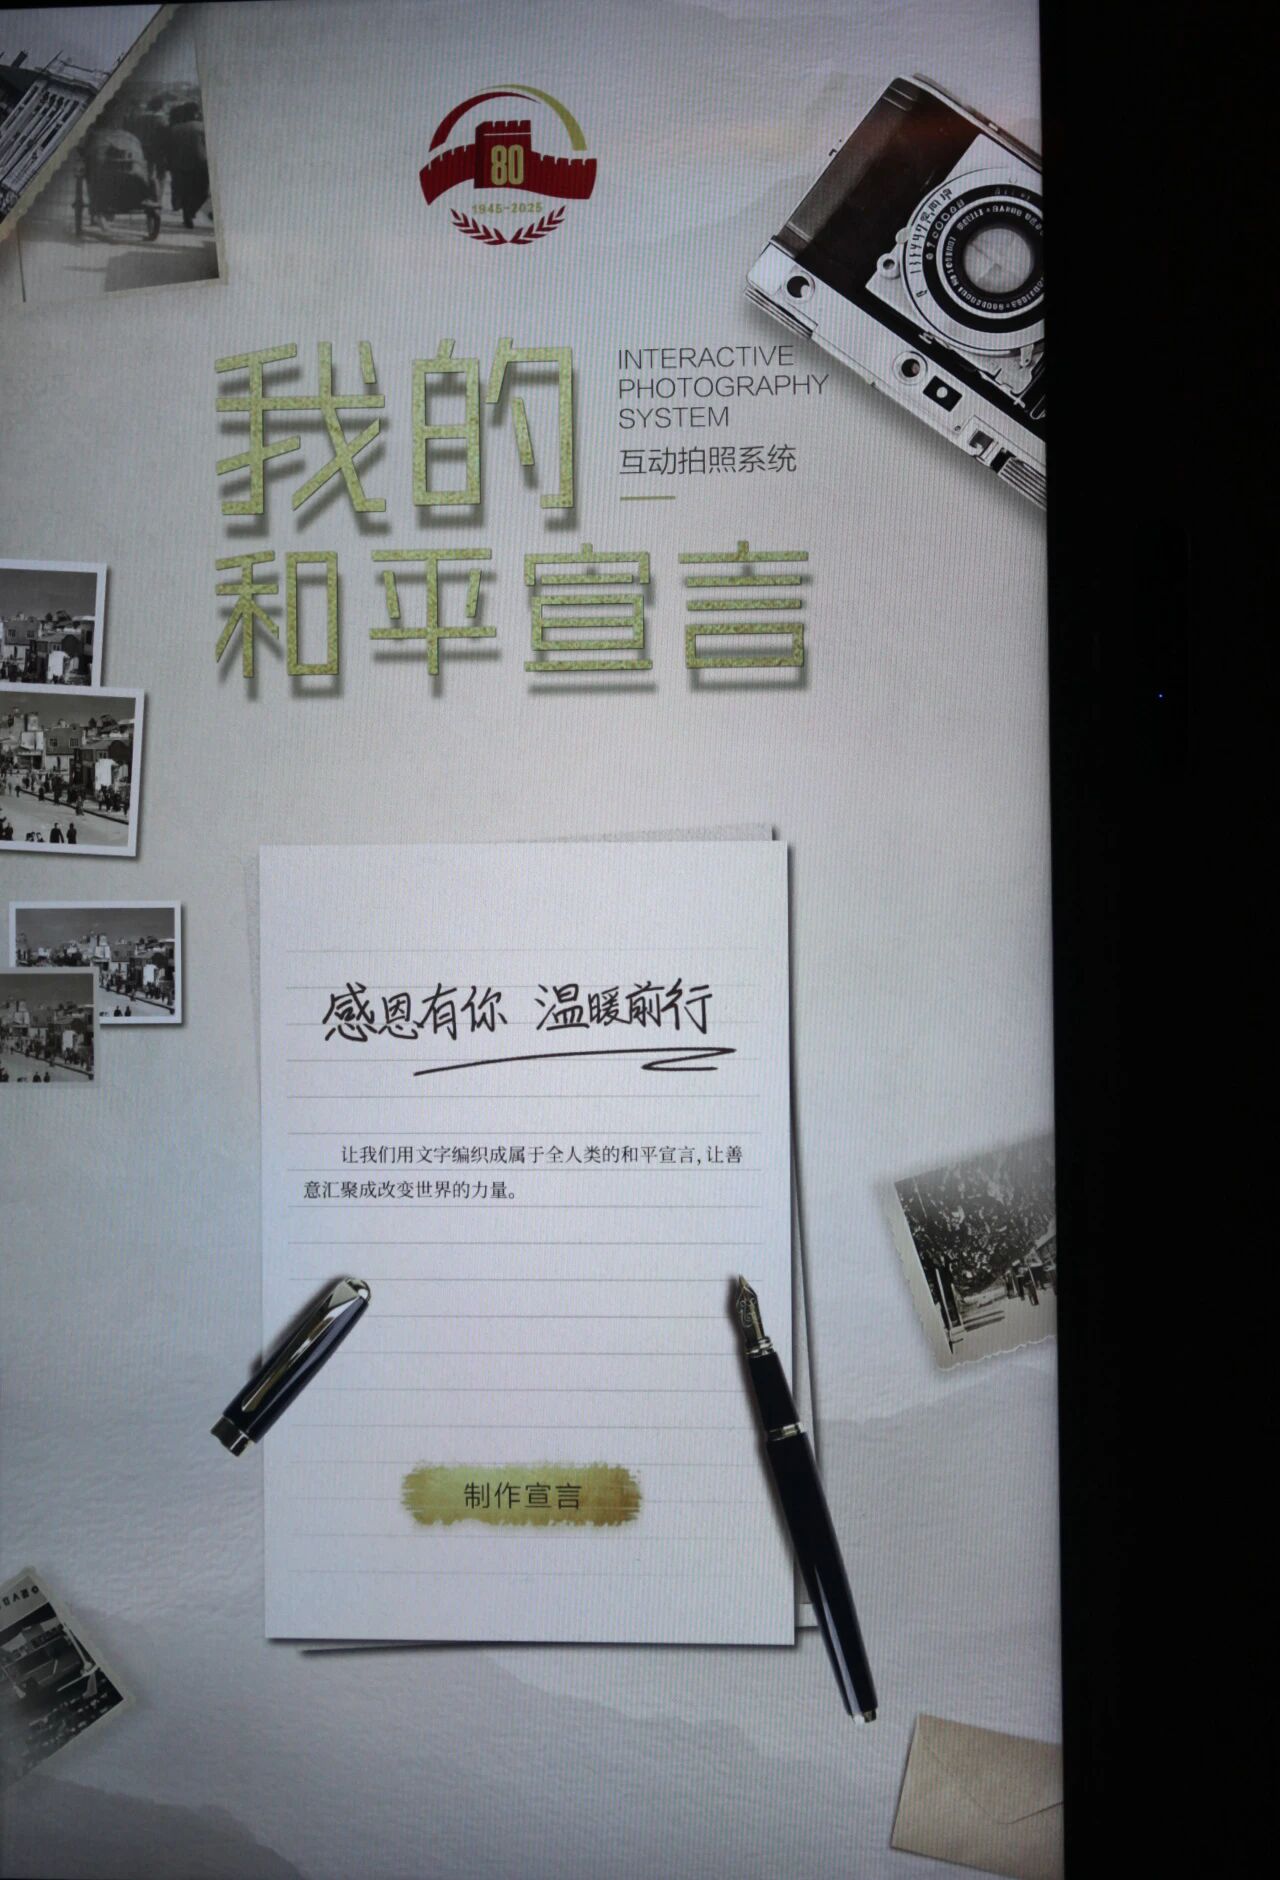 80
1945-2025
我的
和平宣言
INTERACTIVE
PHOTOGRAPHY
SYSTEM
互动拍照系统
感恩有你 温暖前行
让我们用文字编织成属于全人类的和平宣言，让善
意汇聚成改变世界的力量。
制作宣言